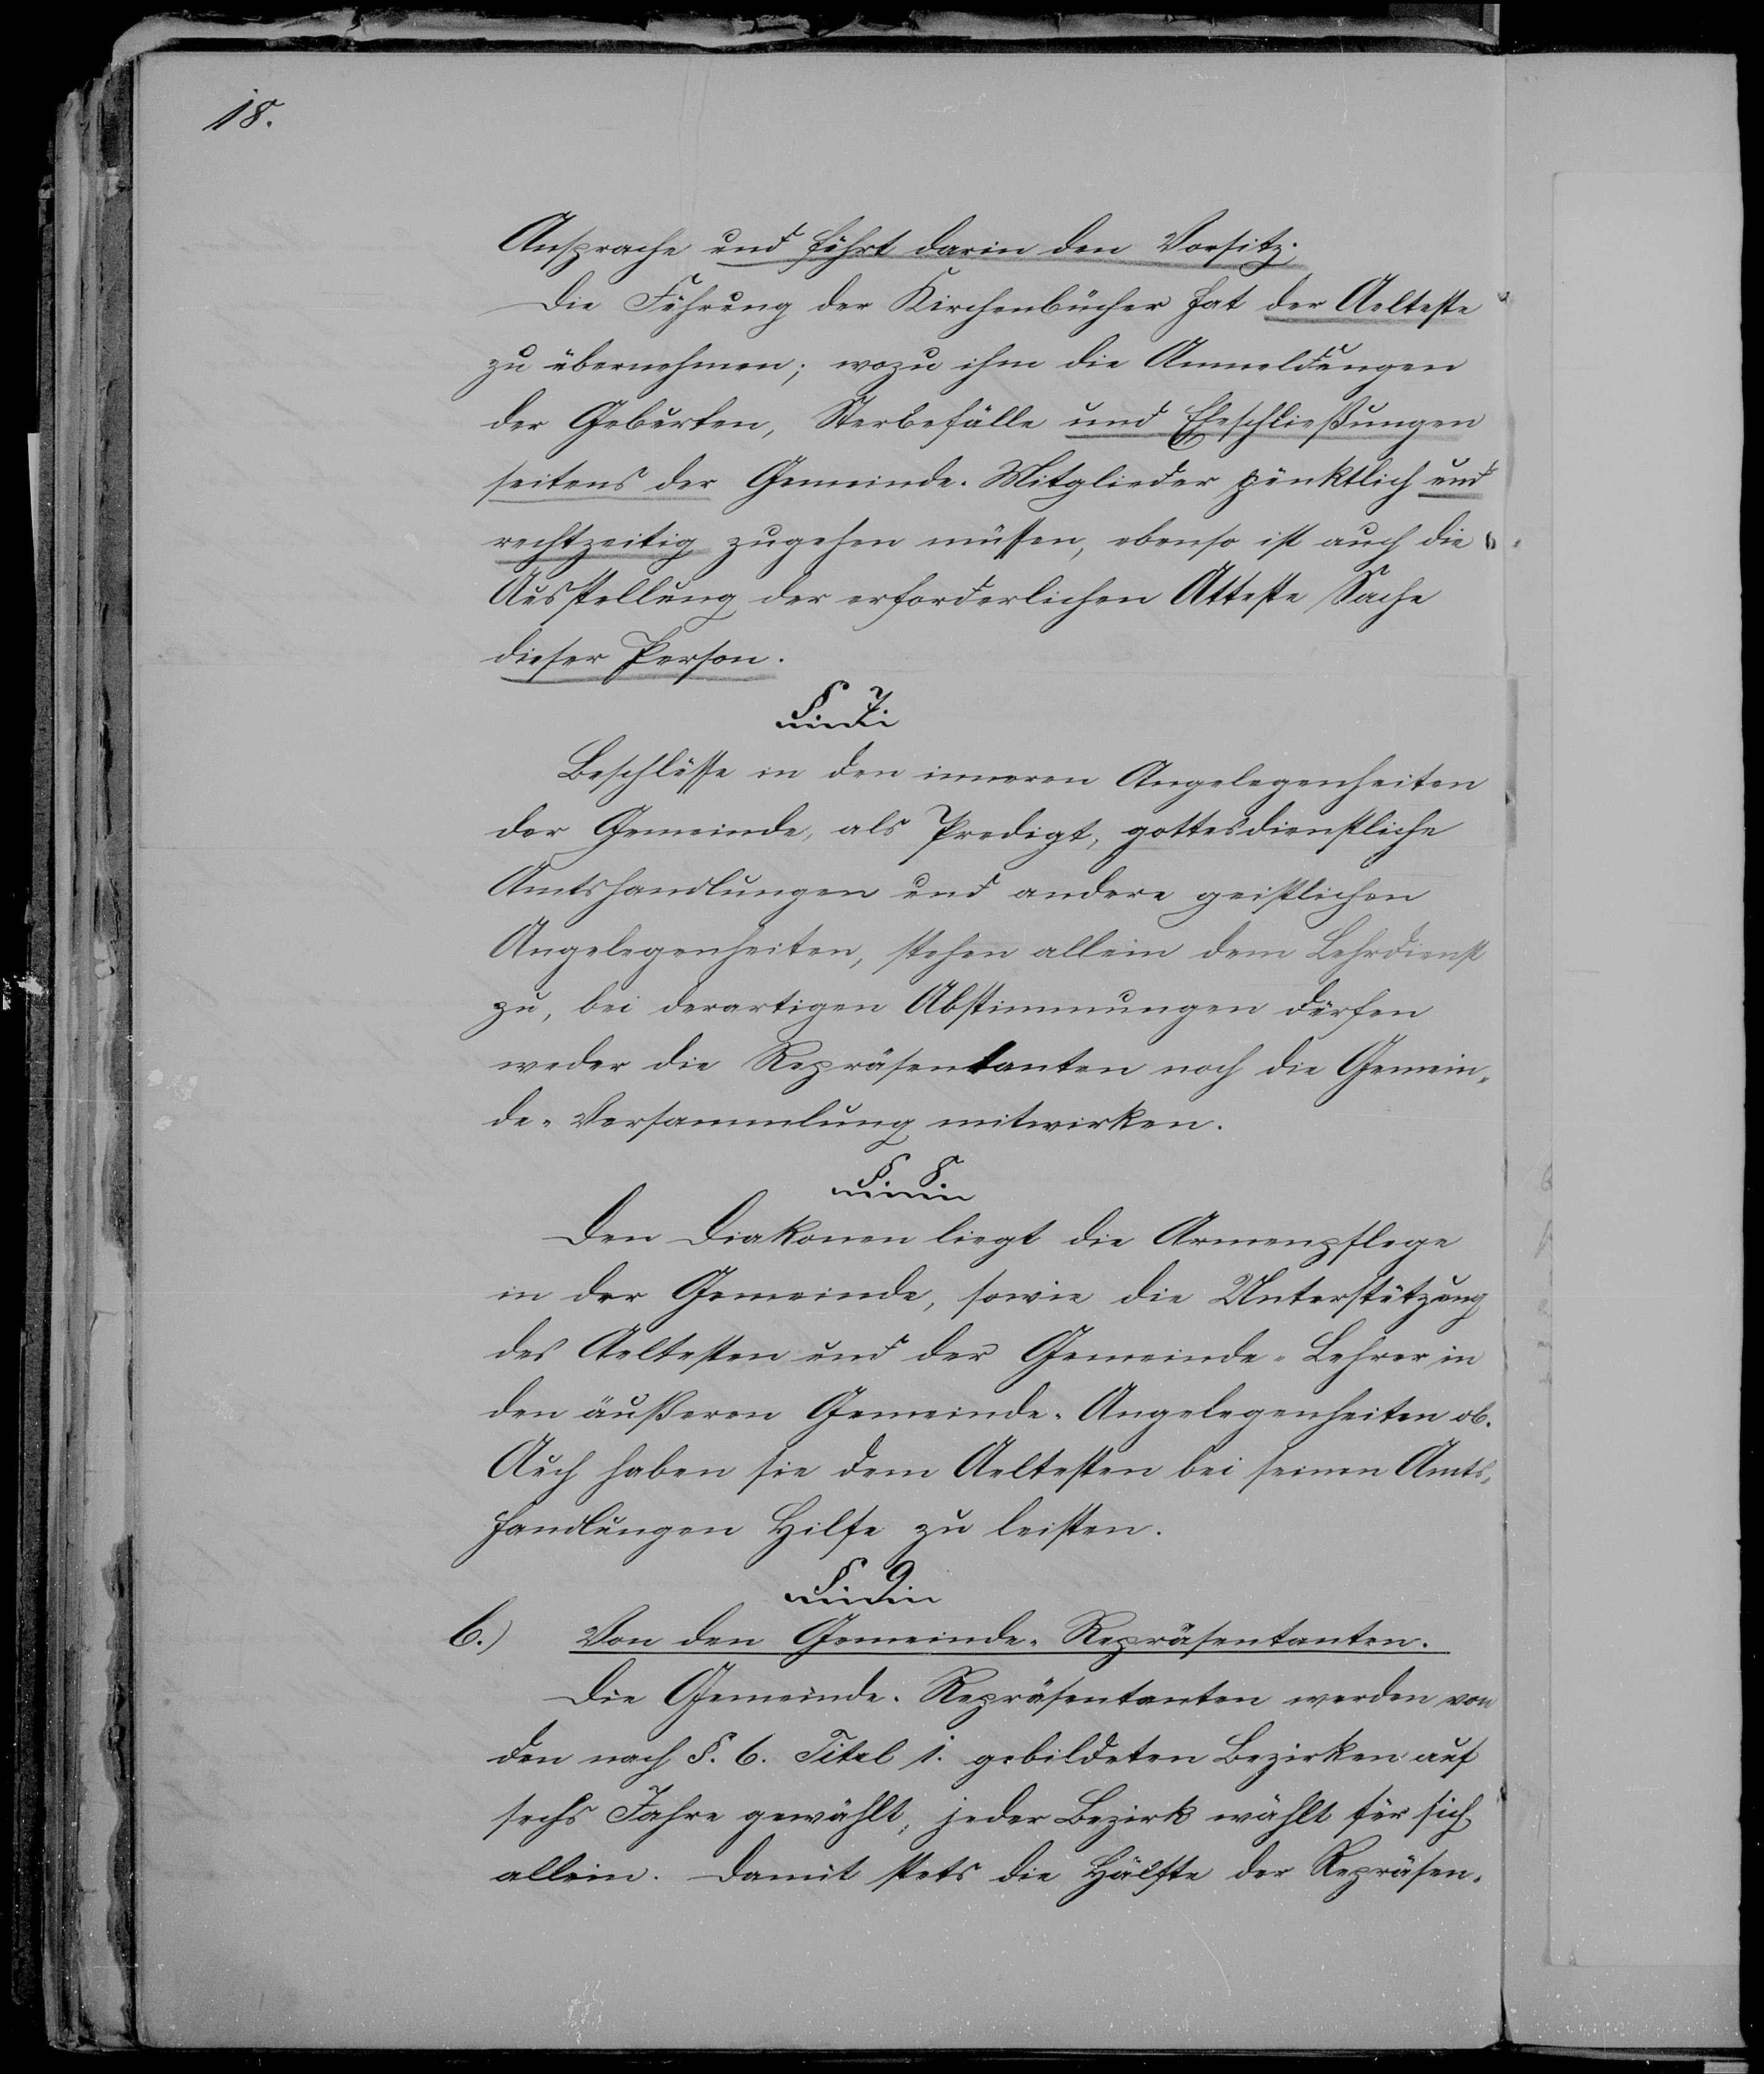 18.
Ansprache und führt darin den Vorsitz;
Die Führung der Kirchenbücher hat der Aelteste
zu übernehmen; wozu ihm die Anmeldungen
der Geburten, Sterbefälle und Eheschließungen
seitens der Gemeinde-Mitglieder pünktlich und
rechtzeitig zugehen müssen, ebenso ist auch die
Ausstellung der erforderlichen Atteste Sache
dieser Person.
§ 7.
Beschlüsse in den inneren Angelegenheiten
der Gemeinde, als Predigt, gottesdienstliche
Amtshandlungen und andere geistlichen
Angelegenheiten, stehen allein dem Lehrdienst
zu, bei derartigen Abstimmungen dürfen
weder die Repräsentanten noch die Gemein-
de-Versammlung mitwirken.
§ 8
Den Diakonen liegt die Armenpflege
in der Gemeinde, sowie die Unterstützung
des Aeltesten und der Gemeinde-Lehrer in
den äußeren Gemeinde-Angelegenheiten ob.
Auch haben sie dem Aeltesten bei seinen Amts-
handlungen Hilfe zu leisten.
§ 9
b.) Von den Gemeinde-Repräsentanten.
Die Gemeinde-Repräsentanten werden von
den nach §. 6. Titel 1. gebildeten Bezirken auf
sechs Jahre gewählt, jeder Bezirk wählt für sich
allein. Damit stets die Hälfte der Repräsen-